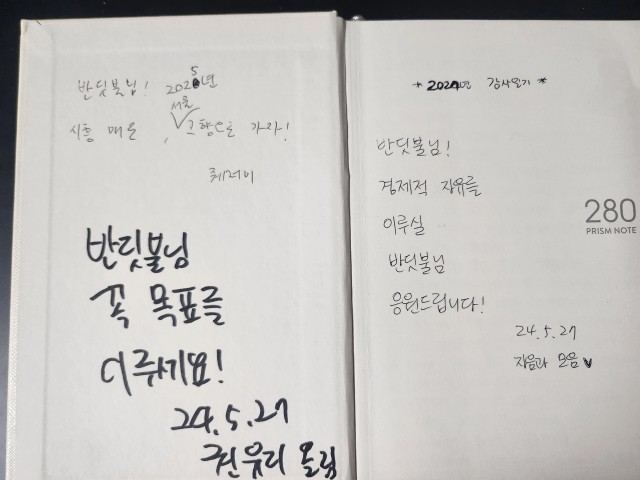 반딧불님! 2025년
시흥 매운, 서울 고향으로 가자!
체러미
반딧불님
꼭 목표를
이루기요!
24.5.27
권유리 올림
*2024년 감사일기*
반딧불님!
경제적 자유를
이루실
반딧불님
응원드립니다!
24.5.27
자음과 모음
280
PRISM NOTE